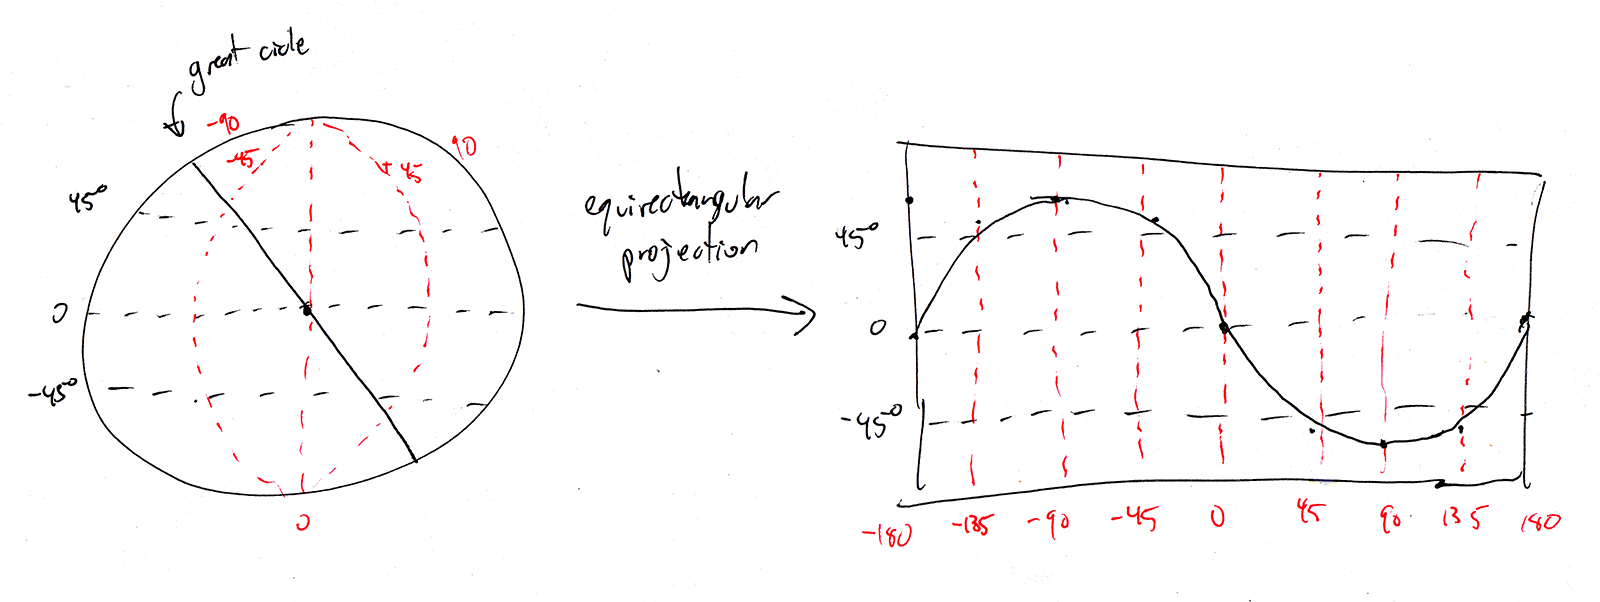 great circle
-90
90
-45
+45
45°
0
-45°
0
equirectangular
projection
45°
0
-45°
-180 -135 -90 -45 0 45 90 135 180